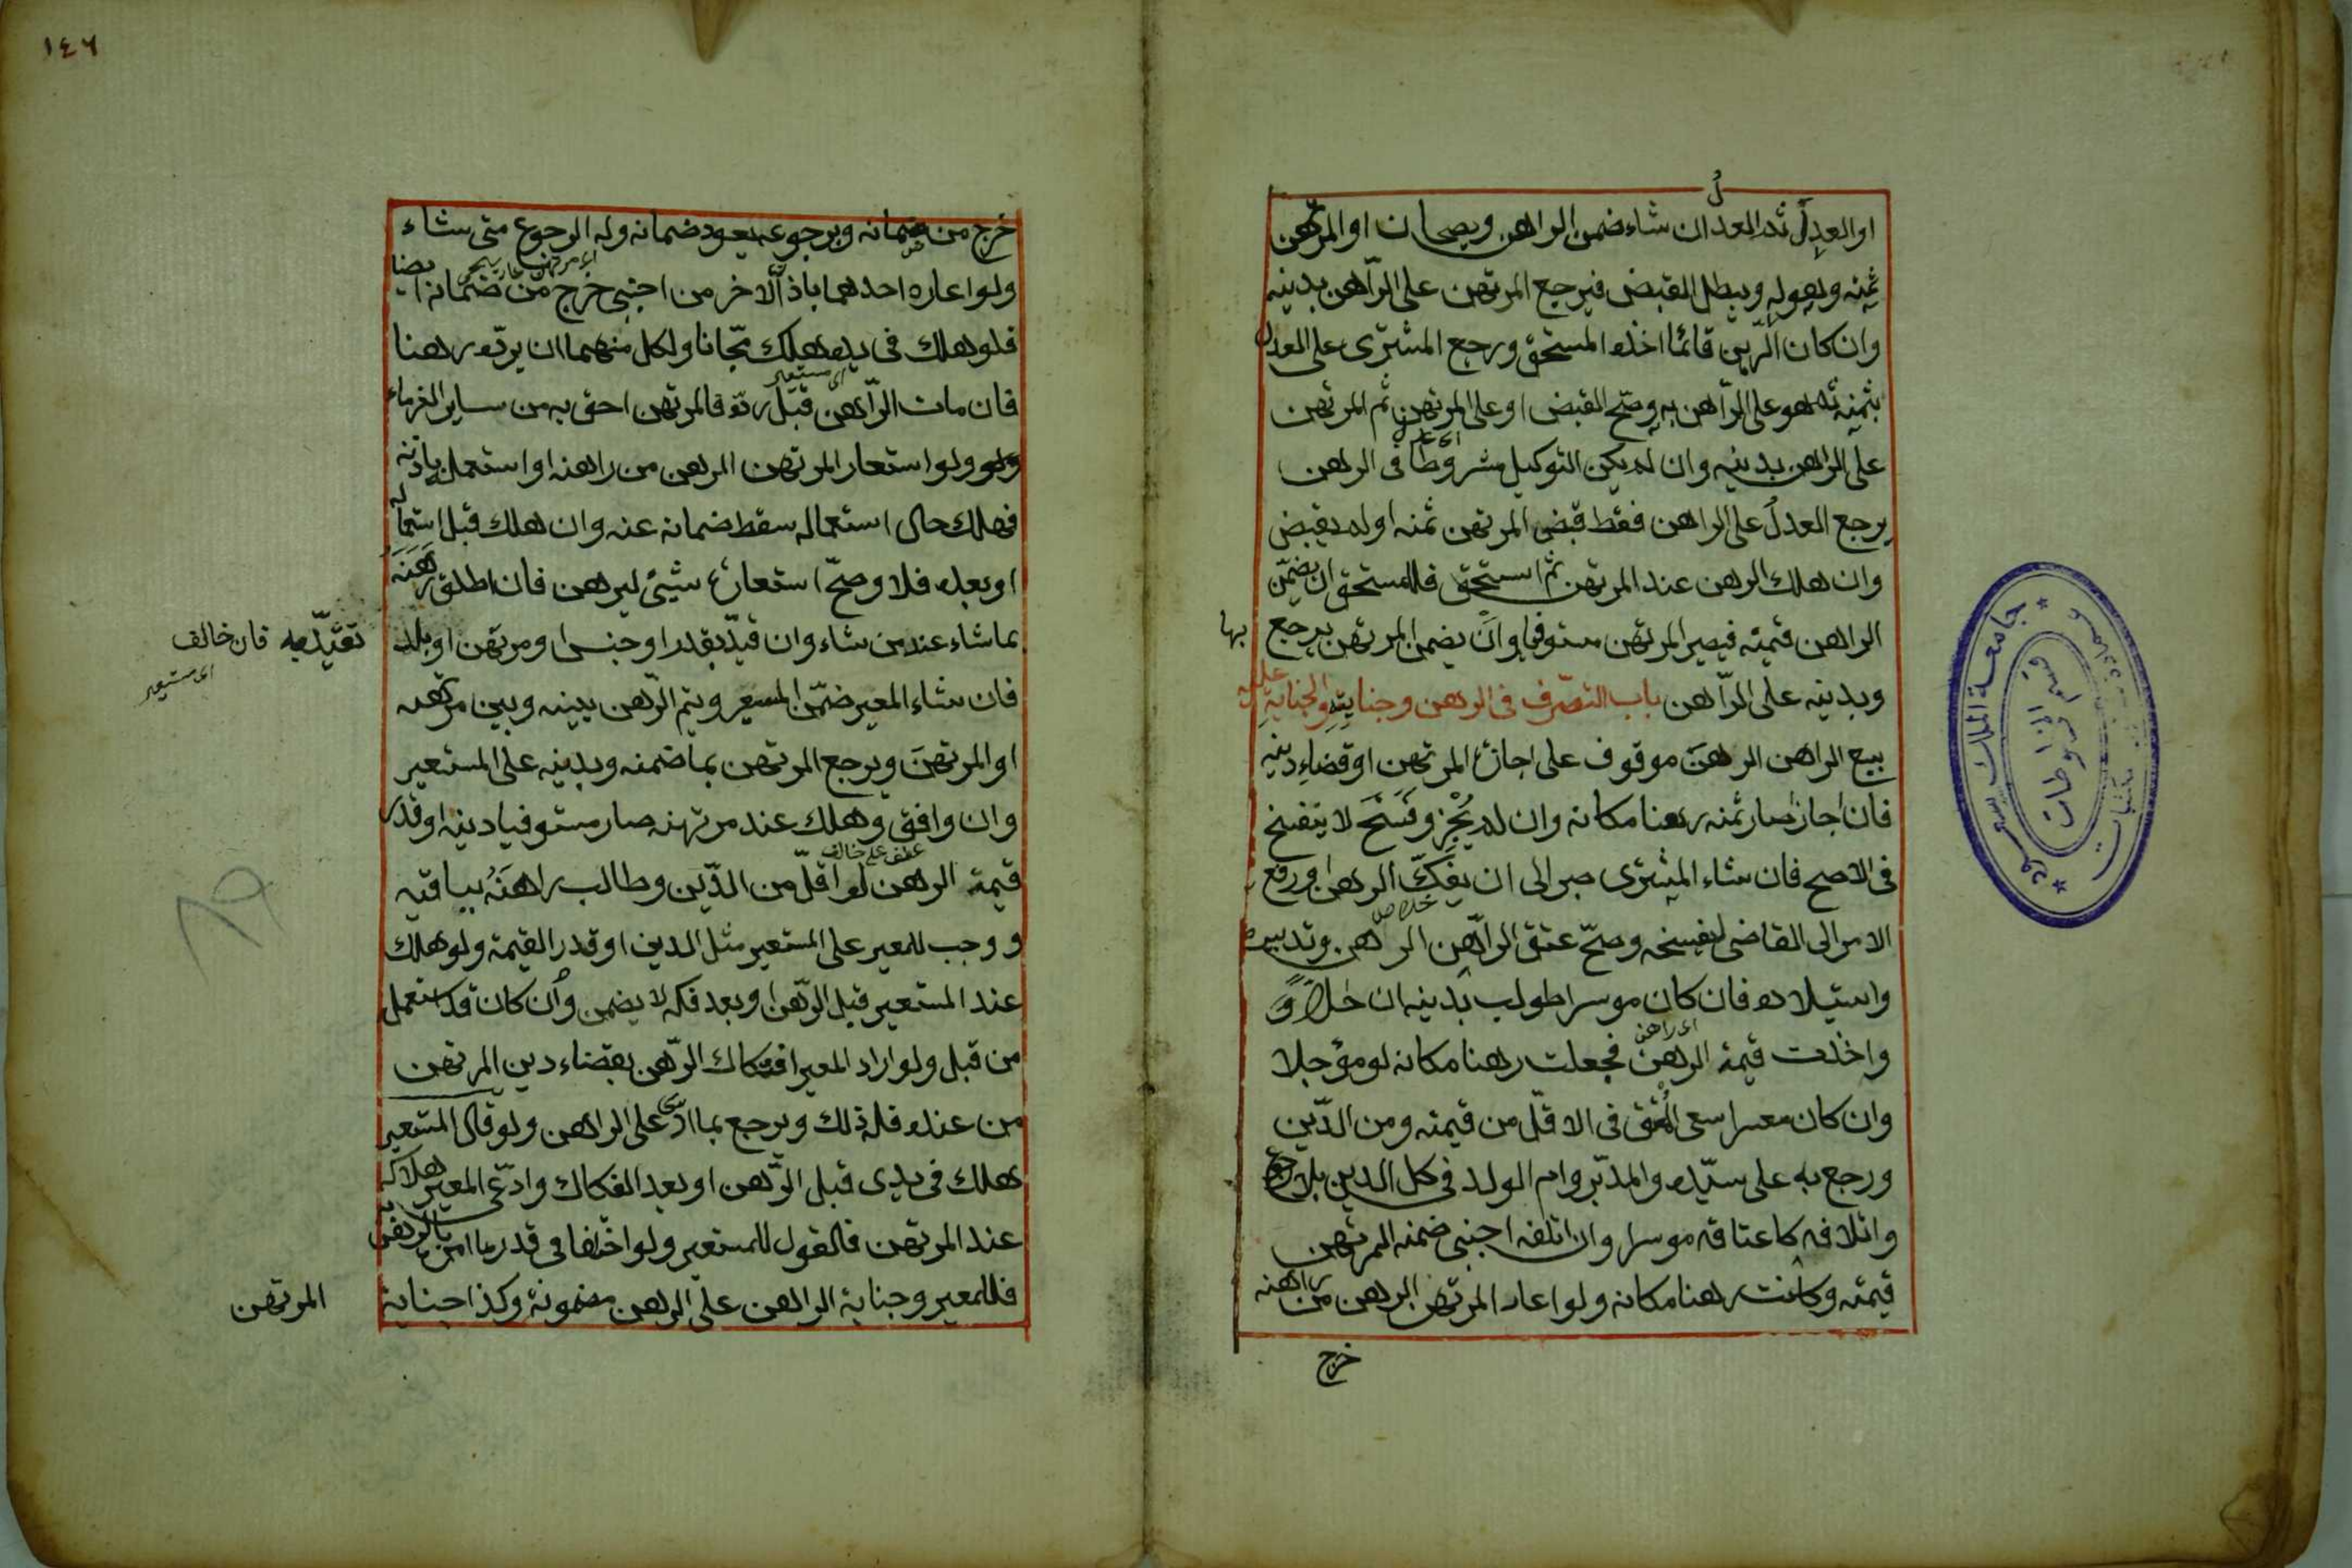 او العدل ثم العدل ان شاء ضمن الراهن ويصحان او المرتهن
ثمنه وهو له ويبطل القبض فيرجع المرتهن على الراهن بدينه
وان كان الرهن قائما اخذه المستحق ورجع المشتري على العدل
بثمنه ثم هو على الراهن به وصح القبض او على المرتهن ثم المرتهن
على الراهن بدينه وان لم يكن التوكيل مشروطا في الرهن
يرجع العدل على الراهن فقط قبض المرتهن ثمنه او لم يقبض
وان هلك الرهن عند المرتهن ثم استحق فللمستحق ان يضمن
الراهن قيمته فيصير المرتهن مستوفيا وان يضمن المرتهن يرجع بها
وبدينه على الراهن باب التصرف في الرهن وجنايته والجناية عليه
بيع الراهن الرهن موقوف على اجازة المرتهن او قضاء دينه
فان اجاز صار ثمنه رهنا مكانه وان لم يجز وفسخ لا ينفسخ
في الاصح فان شاء المشتري صبر الى ان يفك الرهن او رفع
خلاص
الامر الى القاضي ليفسخه وصح عتق الراهن الرهن وتدبيره
واستيلاده فان كان موسرا طولب بدينه ان حالا و
اى راهن
واخذت قيمة الرهن فجعلت رهنا مكانه لو مؤجلا
وان كان معسرا سعى المعتق في الاقل من قيمته ومن الدين
ورجع به على سيده والمدبر وام الولد في كل الدين بلا رجوع
واتلافه كاعتاقه موسرا وان اتلفه اجنبي ضمنه المرتهن
قيمته وكانت رهنا مكانه ولو اعار المرتهن الرهن من راهنه
خرج
١٤٦
خرج من ضمانه وبرجوعه يعود ضمانه وله الرجوع متى شاء
ولو اعاره احدهما باذن الاخر من اجنبي خرج من ضمانه ايضا
فلو هلك في يده هلك مجانا ولكل منهما ان يرده رهنا
اى مستعير
فان مات الراهن قبل رده فالمرتهن احق به من ساير الغرماء
ولو ولو استعار المرتهن الرهن من راهنه او استعمله باذنه
فهلك حال استعماله سقط ضمانه عنه وان هلك قبل استعماله
او بعده فلا وصح استعارة شيئ ليرهن فان اطلق رهنه
بما شاء عند من شاء وان قيد بقدر او جنس او مرتهن او بلد تقيد به فان خالف
اى مستعير
فان شاء المعير ضمن المستعير ويتم الرهن بينه وبين مرتهنه
او المرتهن ويرجع المرتهن بما ضمنه وبدينه على المستعير
وان وافق وهلك عند مرتهنه صار مستوفيا دينه او قدر
عطف على خالف
قيمة الرهن لو اقل من الدين وطالب راهنه بباقيه
ووجب للمعير على المستعير مثل الدين او قدر القيمة ولو هلك
عند المستعير قبل الرهن او بعد فكه لا يضمن وان كان قد استعمله
من قبل ولو اراد المعير افتكاك الرهن بقضاء دين المرتهن
من عنده فله ذلك ويرجع بما ادى على الراهن ولو قال المستعير
هلك في يدي قبل الرهن او بعد الفكاك وادعى المعير هلاكه
عند المرتهن فالقول للمستعير ولو اختلفا في قدر ما امره بالرهن به
فللمعير وجناية الراهن على الرهن مضمونة وكذا جناية
المرتهن
جامعة الملك سعود
قسم المخطوطات